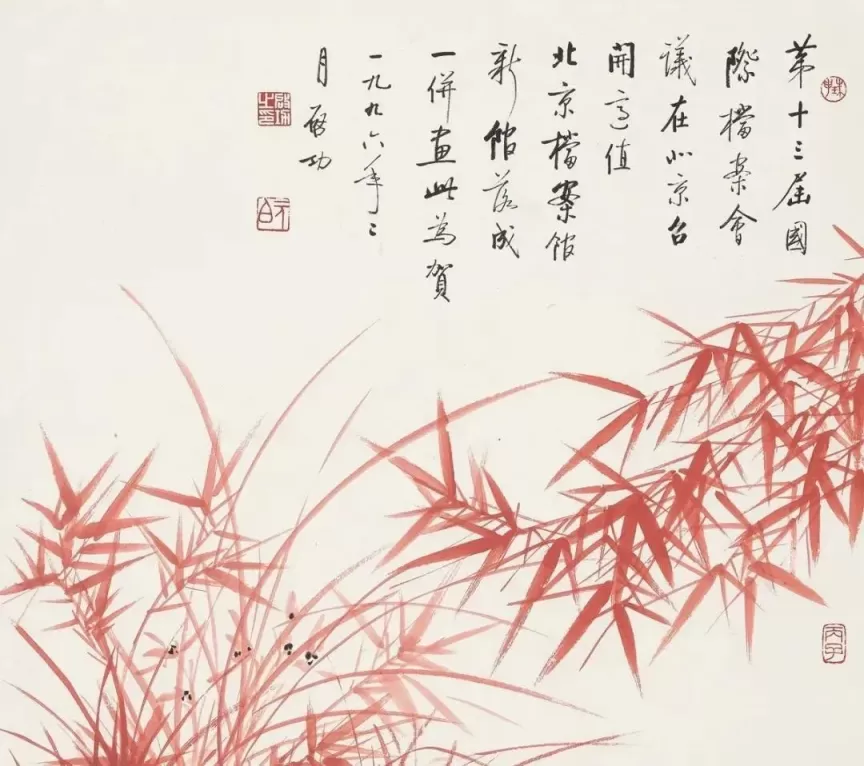 第十三屆國
際檔案會
議在北京召
開適值
北京檔案館
新館落成
一併畫此為賀
一九九六年二
月 啓功
啓功之印
元白
丙子